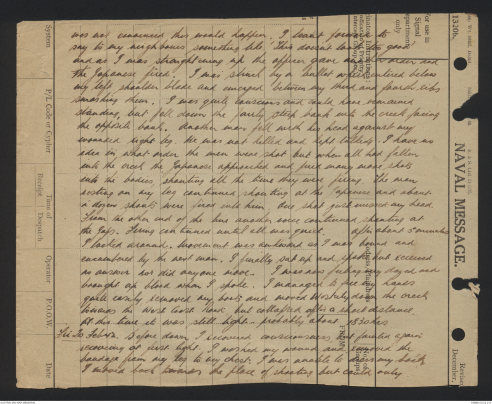 was not concerned this would happen. I leant forward to
say to my neighbour something like "This doesn't look too good"
and as I was straightening up the officer gave another order and
the Japanese fired. I was struck by a bullet which entered below
my left shoulder blade and emerged between my third and fourth ribs
smashing them. I was quite conscious and could have remained
standing, but fell down the fairly steep bank into the creek facing
the opposite bank. Another man fell with his head against my
wounded right leg. He was not killed and kept talking. I have no
idea in what order the men were shot but when all had fallen
into the creek the Japanese approached and fired many more shots
into the bodies shouting all the time they were firing. The man
resting on my leg continued shouting at the Japanese and about
a dozen shots were fired into him. One shot just missed my head.
From the other end of the line another voice continued shouting at
the Japs. Firing continued until all was quiet. After about 5 minutes
I looked around. Movement was awkward as I was bound and
encumbered by the next man. I finally sat up and spoke but received
no answer nor did anyone move. I was now feeling very dazed and
brought up blood when I spoke. I managed to free my hands
quite easily removed my boots and moved Westerly down the creek
towards the West Coast Road but collapsed after a short distance.
At this time it was still light. probably about 1830 hrs
Before dawn I recovered consciousness but fainted again
recovering at first light. I washed my wound and removed the
bandage from my leg to my chest. I was unable to dress my back.
I moved back towards the place of shooting but could only
System
P/L Code or Cypher
Time of
Receipt
Despatch
Operator
P.O.O.W.
Date
For use in
Signal
Department
only
1320b.
NAVAL MESSAGE.
Revised
December,